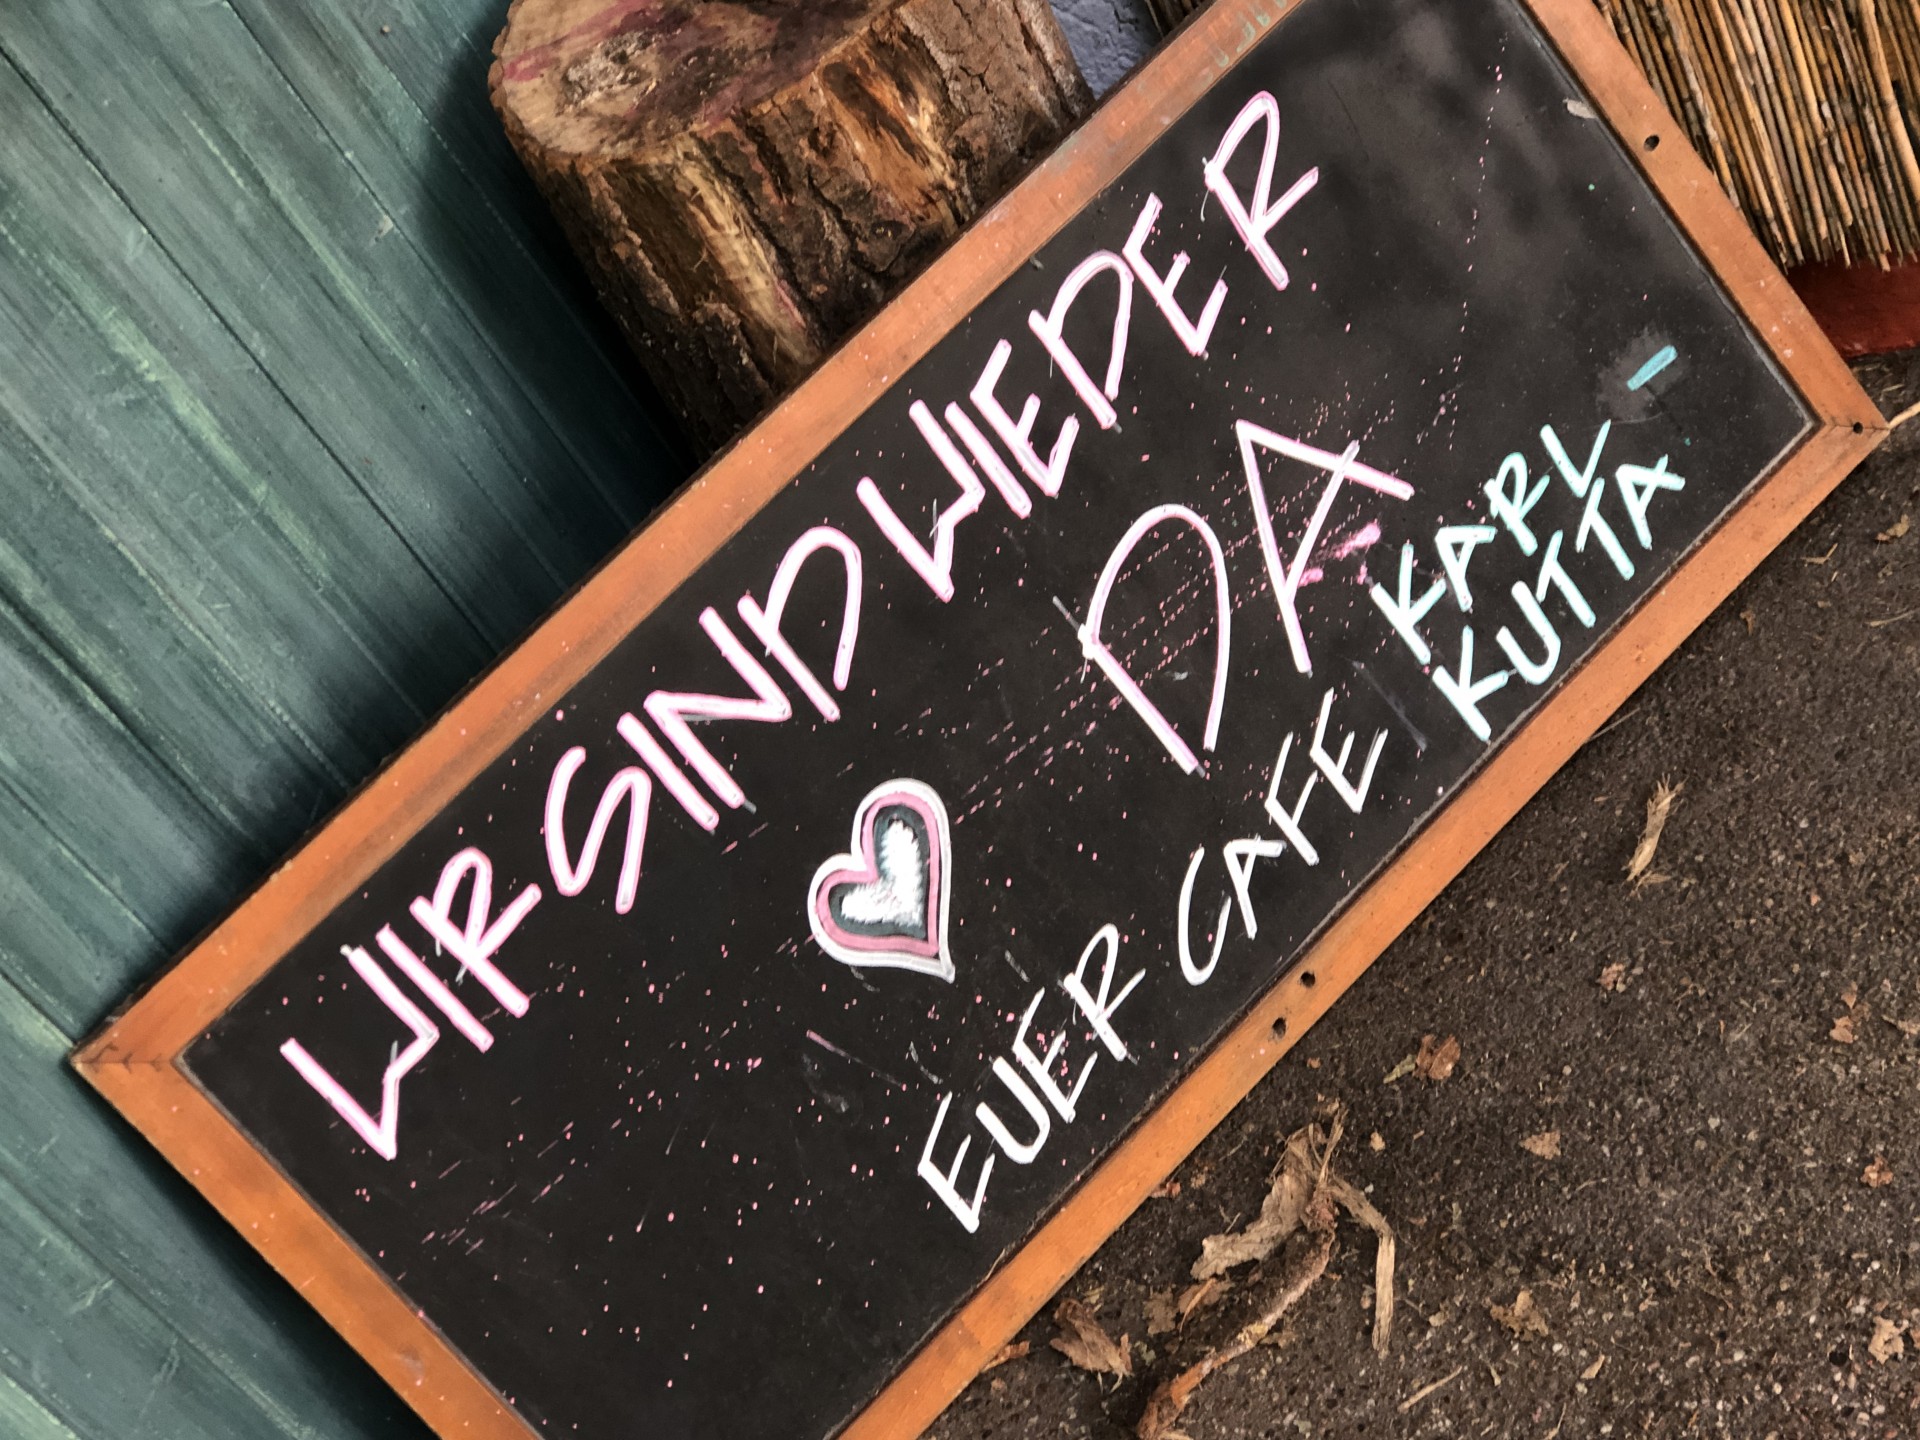 WIR SIND WIEDER
DA
EUER CAFE KARL-
KUTTA